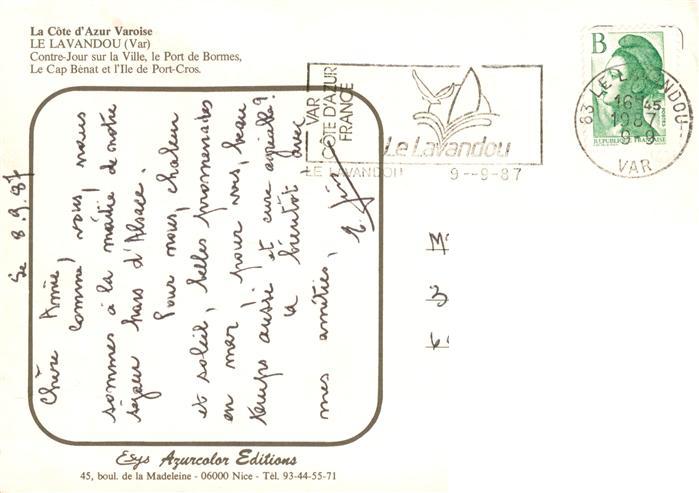 La Côte d'Azur Varoise
LE LAVANDOU (Var)
Contre-Jour sur la Ville, le Port de Bormes,
Le Cap Bènat et l'Ile de Port-Cros.
VAR
CÔTE D'AZUR
FRANCE
Le Lavandou
LE LAVANDOU 9--9-87
B
REPUBLIQUE FRANÇAISE
83 LE LAVANDOU
16H45
1987
9-9
VAR
Le 8.9.87
Chère Amie,
comme vous, nous
sommes à la moitié de notre
séjour hors d'Alsace.
Pour nous, chaleur
et soleil, belles promenades
en mer ; pour vous, beau
temps aussi et cure agréable?
à bientôt avec
mes amitiés,
M
3
6
Esys Azurcolor Editions
45, boul. de la Madeleine - 06000 Nice - Tel. 93-44-55-71